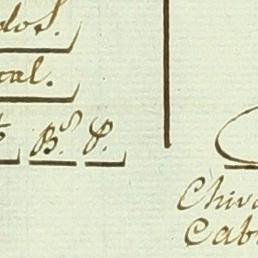 dos.
cal.
Bs. P.
Chiv
Cab